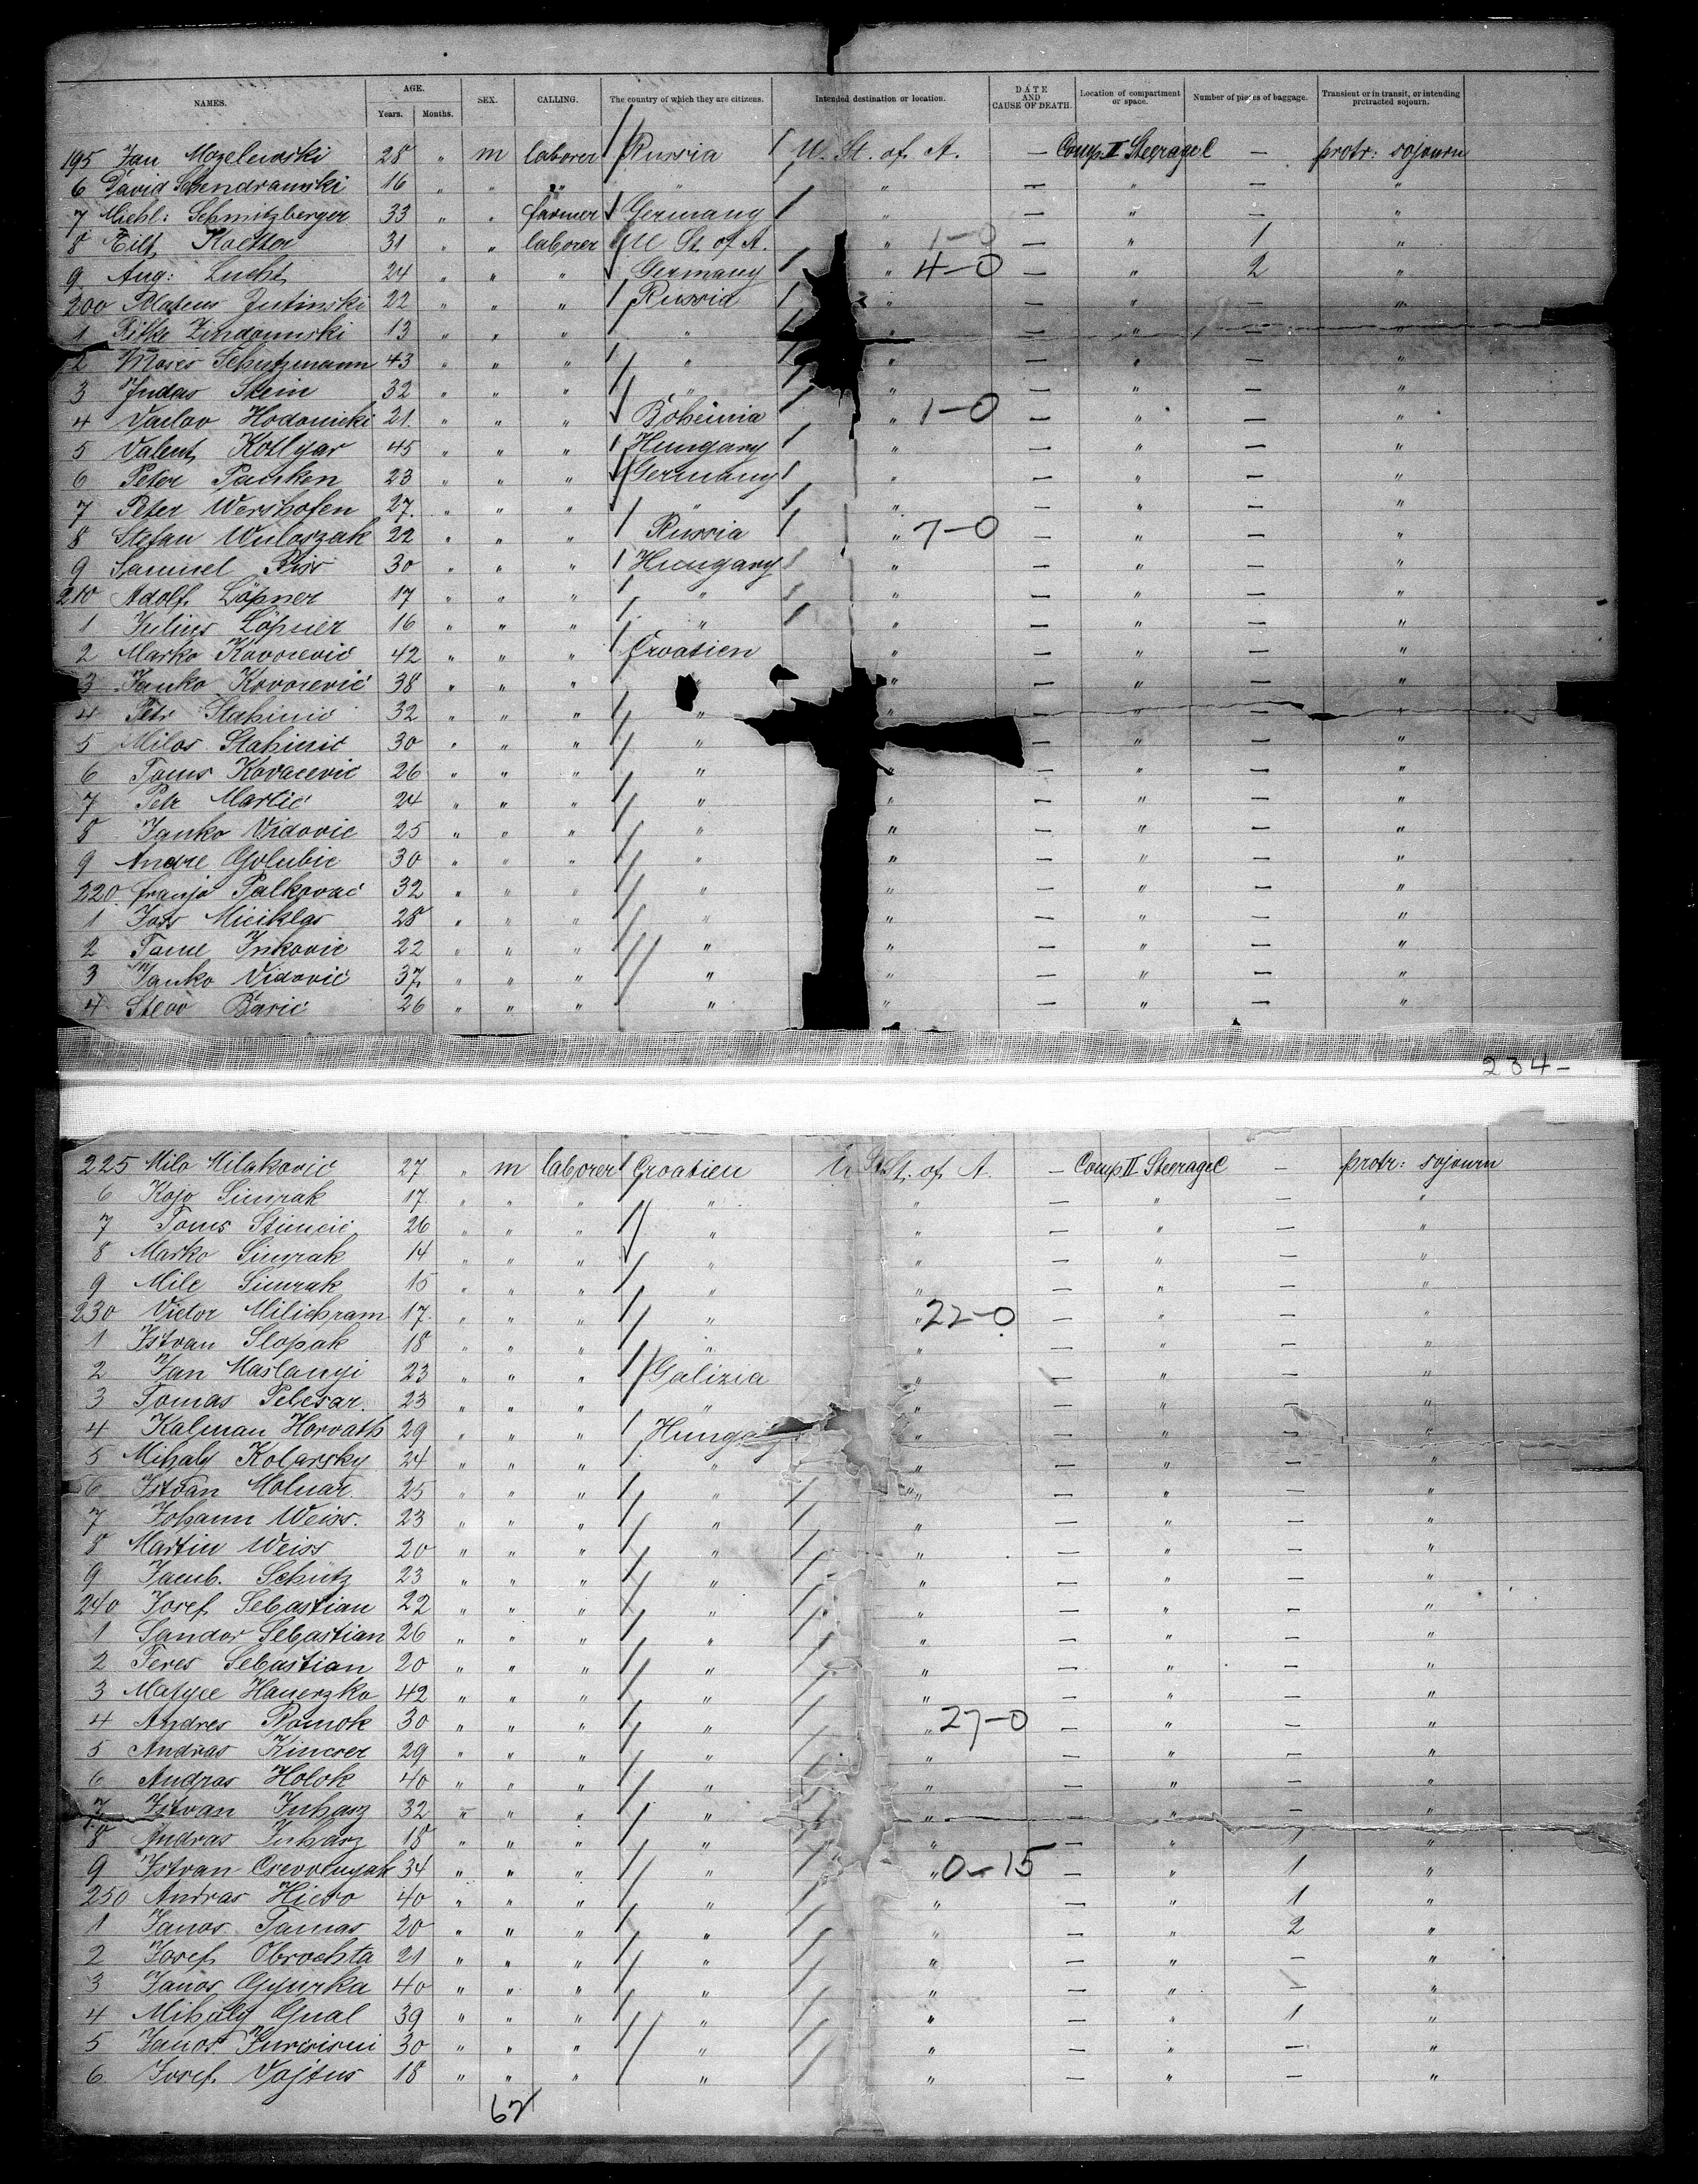 NAMES. AGE. Years. Months. SEX. CALLING. The country of which they are citizens. Intended destination or location. DATE AND CAUSE OF DEATH. Location of compartment or space. Number of pieces of baggage. Transient or in transit, or intending protracted sojourn.
195 Jan Mozelewski 28 " m laborer Russia U. St. of A. — Comp. II Steerage C — protr: sojourn
6 David 16 " " " " " — " — "
7 Michl: Schmitzberger 33 " " farmer Germany " — " — "
8 31 " " laborer U St. of A. " 1-0 — " 1 "
9 Aug: Lucht 24 " " " Germany " 4-0 — " 2 "
200 22 " " " Russia " — " — "
1 13 " " " " — " — "
2 Moses Schutzmann 43 " " " " — " — "
3 Judas Stein 32 " " " " — " — "
4 Vaclav 21. " " " Bohemia " 1-0 — " — "
5 Valent. Kotlyar 45 " " " Hungary " — " — "
6 Peter Pauken 23 " " " Germany " — " — "
7 Peter Wershofen 27. " " " " " — " — "
8 Stefan Wuloszak 22 " " " Russia " 7-0 — " — "
9 Samuel 30 " " " Hungary " — " — "
210 Adolf Löpner 17 " " " " " — " — "
1 Julius Löpner 16 " " " " " — " — "
2 Marko Kovorevic 42 " " " Croatien " — " — "
3 Janko Kovorević 38 " " " " " — " — "
4 Petr Stahinic 32 " " " " " — " — "
5 Milos Stahinic 30 " " " " — " — "
6 Toms Kovacevic 26 " " " " " — " — "
7 Petr Martić 24 " " " " " — " — "
8 Janko Vidovic 25 " " " " " — " — "
9 Andre Golubic 30 " " " " " — " — "
220 franjo Palkovac 32 " " " " " — " — "
1 Miciklas 28 " " " " " — " — "
2 Tome 22 " " " " " — " — "
3 Janko Vidović 37 " " " " " — " — "
4 Stevo Barić 26 " " " " " — " — "
234-
225 Milo Milaković 27 " m laborer Croatien St. of A. — Comp II Steerage C — protr: sojourn
6 Simrak 17. " " " " " — " — "
7 Toms 26 " " " " " — " — "
8 Marko Simrak 14 " " " " " — " — "
9 Mile Simrak 15 " " " " " — " — "
230 Victor Milichram 17. " " " " " 22-0 — " — "
1 Istvan Slopak 18 " " " " " — " — "
2 Jan Maslanyi 23 " " " Galizia " — " — "
3 Tomas Pelesar. 23 " " " " " — " — "
4 Kalman Horvath 29 " " " Hungary " — " — "
5 Mihaly Kolarsky 24 " " " " " — " — "
6 Istvan Molnar 25 " " " " " — " — "
7 Johann Weiss. 23 " " " " " — " — "
8 Martin Weiss 20 " " " " " — " — "
9 Jacob. Schütz 23 " " " " " — " — "
240 Josef Sebastian 22 " " " " " — " — "
1 Sandor Sebastian 26 " " " " " — " — "
2 Teres Sebastian 20 " " " " " — " — "
3 Matyee Hanerzko 42 " " " " " — " — "
4 Andres Romok 30 " " " " " 27-0 — " — "
5 Andras Kincser 29 " " " " " — " — "
6 Andras Holok 40 " " " " " — " — "
7 Istvan Juhasz 32 " " " " " — " — "
8 Andras Juhasz 18 " " " " " — " 1 "
9 Istvan Csevvenyak 34 " " " " " 0-15 — " 1 "
250 Andras 40 " " " " " — " 1 "
1 Janos Tamas 20 " " " " " — " 2 "
2 Josef Obrochta 21 " " " " " — " — "
3 Janos Gyurka 40 " " " " " — " — "
4 Mihaly Gual 39 " " " " " — " 1 "
5 Janos 30 " " " " " — " — "
6 Josef Vojtus 18 " " " " " — " — "
62